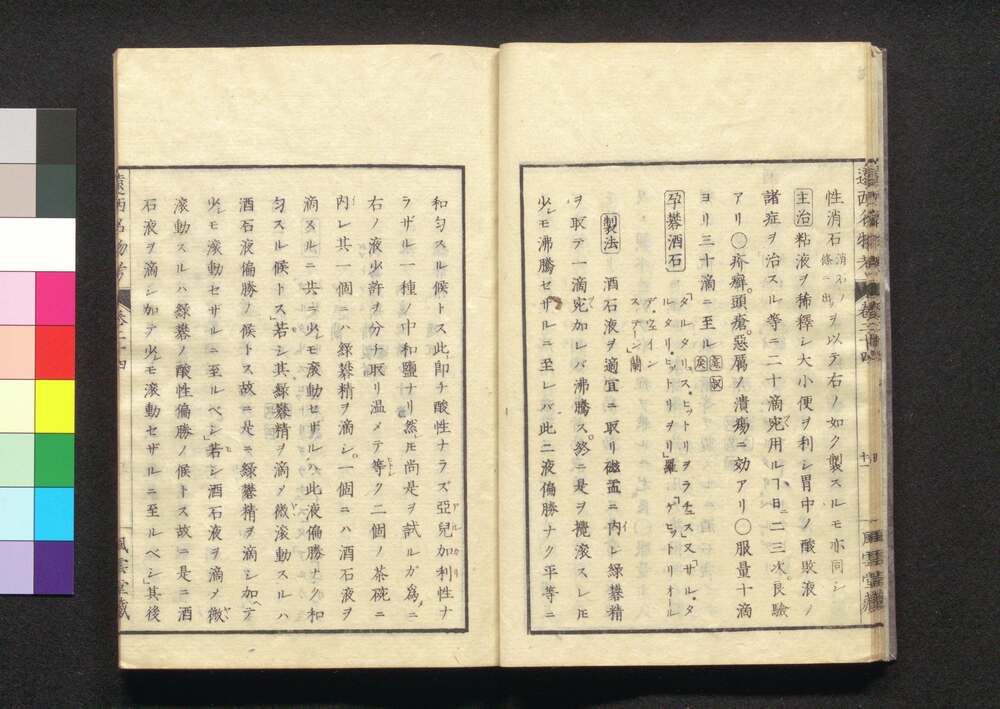 性消石消石ノ條ニ出ヲ以テ右ノ如ク製スルモ亦同シ
主治粘液ヲ稀釋シ大小便ヲ利シ胃中ノ酸敗液ノ
諸症ヲ治スル等ニ二十滴宛用ルヿ日ニ二三次良驗
アリ〇疥癬。頭瘡。惡厲ノ潰瘍ニ効アリ〇服量十滴
ヨリ三十滴ニ至ル
孕礬酒石
製法 酒石液ヲ適宜ニ取リ磁盂ニ内レ綠礬精
ヲ取テ一滴宛加レバ沸騰ス。終ニ是ヲ攪滾スレ𪜈
少モ沸騰セザルニ至レバ此二液偏勝ナク平等ニ
和匀スル候トス此卽チ酸性ナラズ亞兒加利性ナ
ラザル一種ノ中和鹽ナリ然𪜈尚是ヲ試ルガ爲ニ
右ノ液少許ヲ分十取リ温メテ等ク二個ノ茶碗ニ
内レ其一個ニハ綠礬精ヲ滴シ。一個ニハ酒石液ヲ
滴スルニ共ニ少モ滾動セザルハ此液偏勝ナク和
匀スル候トス若シ其綠礬精ヲ滴ノ微滾動スルハ
酒石液偏勝ノ候トス故ニ是ニ綠礬精ヲ滴シ加テ
少モ滾動セザルニ至ルベシ」若シ酒石液ヲ滴ノ微
滾動スルハ綠礬ノ酸性偏勝ノ候トス故ニ是ニ酒
石液ヲ滴シ加テ少モ滾動セザルニ至ルベシ」其後
遠西名物考 卷二十四 風雲堂藏